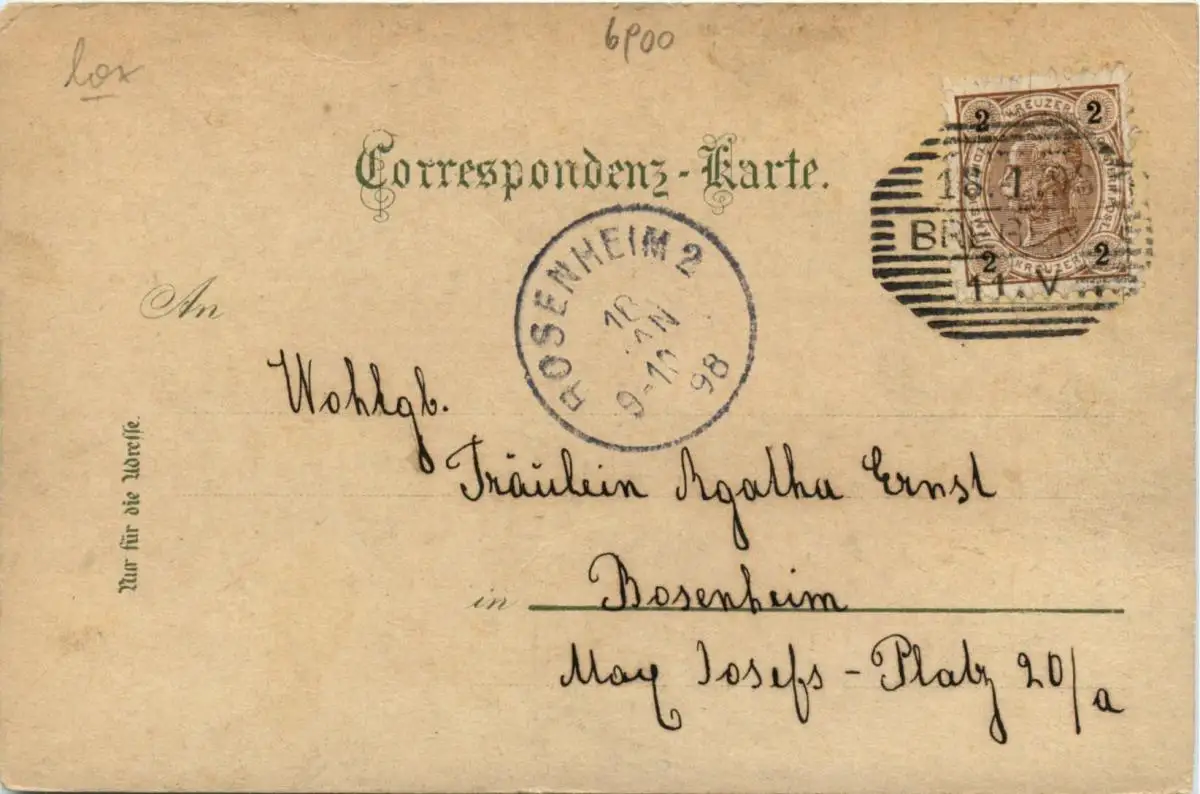 6900
Correspondenz-Karte.
2 KREUZER 2
18.1.
2 KREUZER 2
11.V
ROSENHEIM 2
JAN
9-10
98
An
Wohlgb.
Fräulein Agatha Ernst
in Rosenheim
Max Josefs-Platz 20/a
Nur für die Adresse.